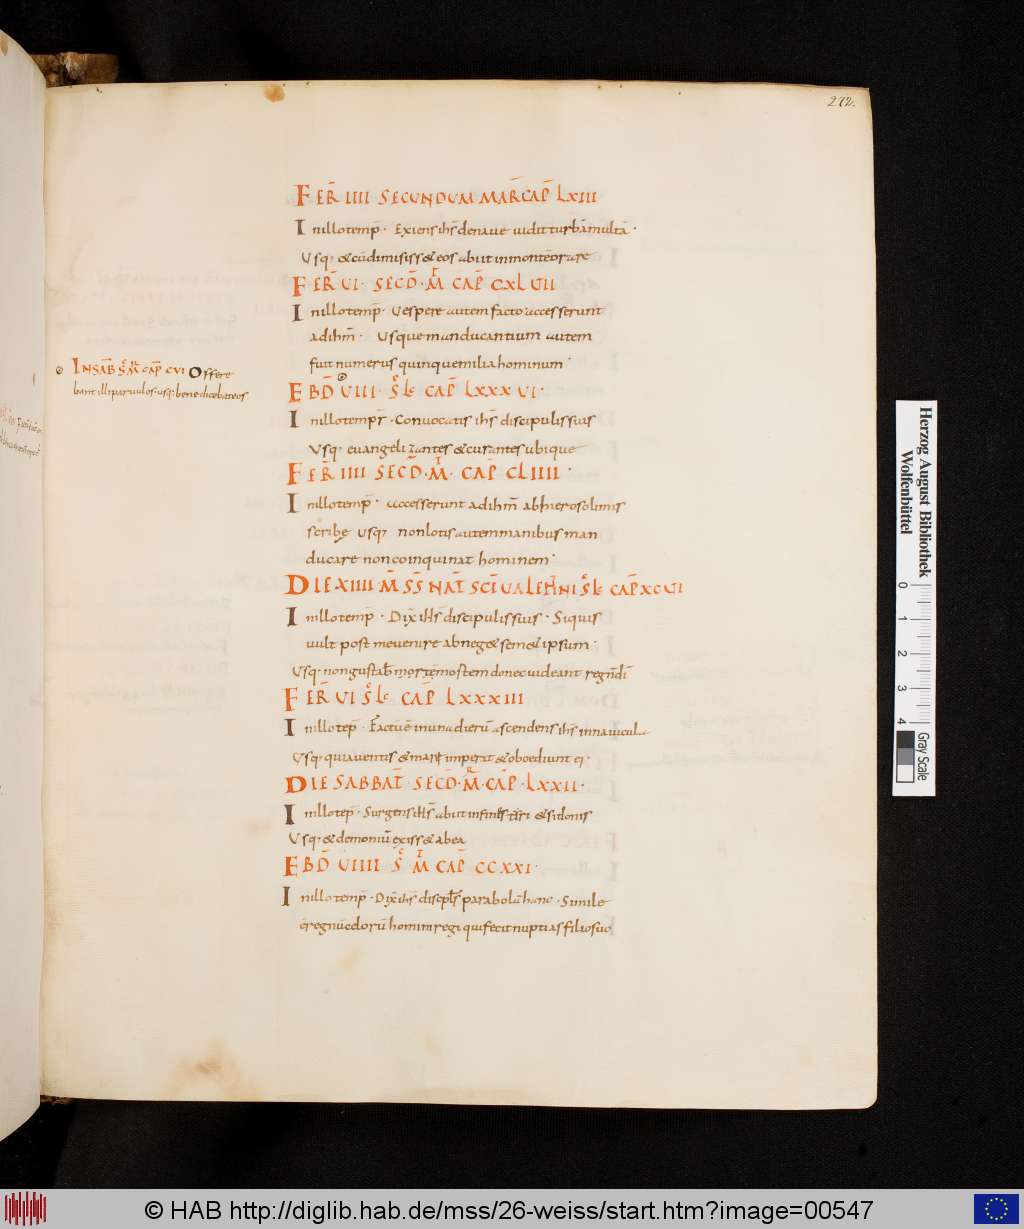 272.
FER̄ IIII SECUNDUM MAR̄ CAP̄ LXIII
In illo temp̄. Exiens ihs̄ de naue uidit turbā multā.
Usq; & cū dimisiss& eos abiit in montē orare
FER̄ UI. SECD̄. M̄T CAP̄ CXLUII
In illo temp̄. Uespere autem facto accesserunt
ad ihm̄. Usque manducantium autem
fuit numerus quinque milia hominum.
INSAB̄ S̄C M̄R CAP̄ CUI Offere
bant illi paruulos. usq; benedicebat eos
EBD̄ UIII. S̄ LC CAP̄ LXXXUI.
In illo tempr̄. Conuocatis ihs̄ discipulis suis
Usq; euangelizantes & curantes ubique
FER̄ IIII SECD̄. M̄T. CAP̄ CLIIII.
In illo temp̄. accesserunt ad ihm̄ ab hierosolimis
scribę Usq; non lotis autem manibus man
ducare non coinquinat hominem.
DIE XIIII M̄S S̄ NAT̄ SC̄I UALENTINI S̄ LC CAP̄ XCUI
In illo temp̄. Dix̄ ihs̄ discipulis suis. Siquis
uult post me uenire abneg& sem&ipsum.
Usq; non gustab̄ mortē mostem donec uideant regn̄ dī
FER̄ UI S̄ LC CAP̄ LXXXIII
In illo tep̄. Factū ē in una dierū ascendens ihs̄ in nauicula
Usq; quia uentis & mare imperat & oboediunt ei.
DIE SABBAT̄ SECD̄. M̄R. CAP̄. LXXII.
In illo tep̄. Surgens ihs̄ abiit in fines tiri & sidonis
Usq; & demoniū exiss& ab ea
EBD̄ UIIII S̄C M̄T CAP̄ CCXXI.
In illo temp̄. Dix̄ ihs̄ discipl̄s parabolā hanc. Simile
ē regnū celorū homini regi qui fecit nuptias filio suo
Herzog August Bibliothek
Wolfenbüttel
0 1 2 3 4
Gray Scale
© HAB http://diglib.hab.de/mss/26-weiss/start.htm?image=00547